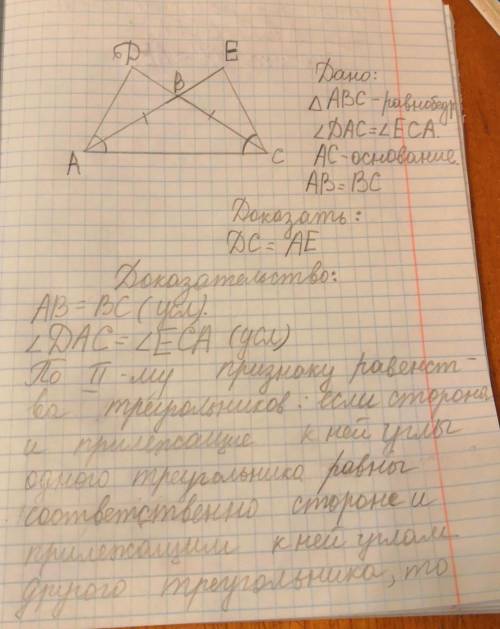 D E
B
A C
Дано:
△ABC - равнобедр.
∠DAC=∠ECA.
AC-основание.
AB=BC
Доказать:
DC=AE
Доказательство:
AB=BC (усл).
∠DAC=∠ECA (усл)
По II-му признаку равенст-
ва треугольников: если стороны
и прилежащие к ней углы
одного треугольника равны
соответственно стороне и
прилежащим к ней углам
другого треугольника, то